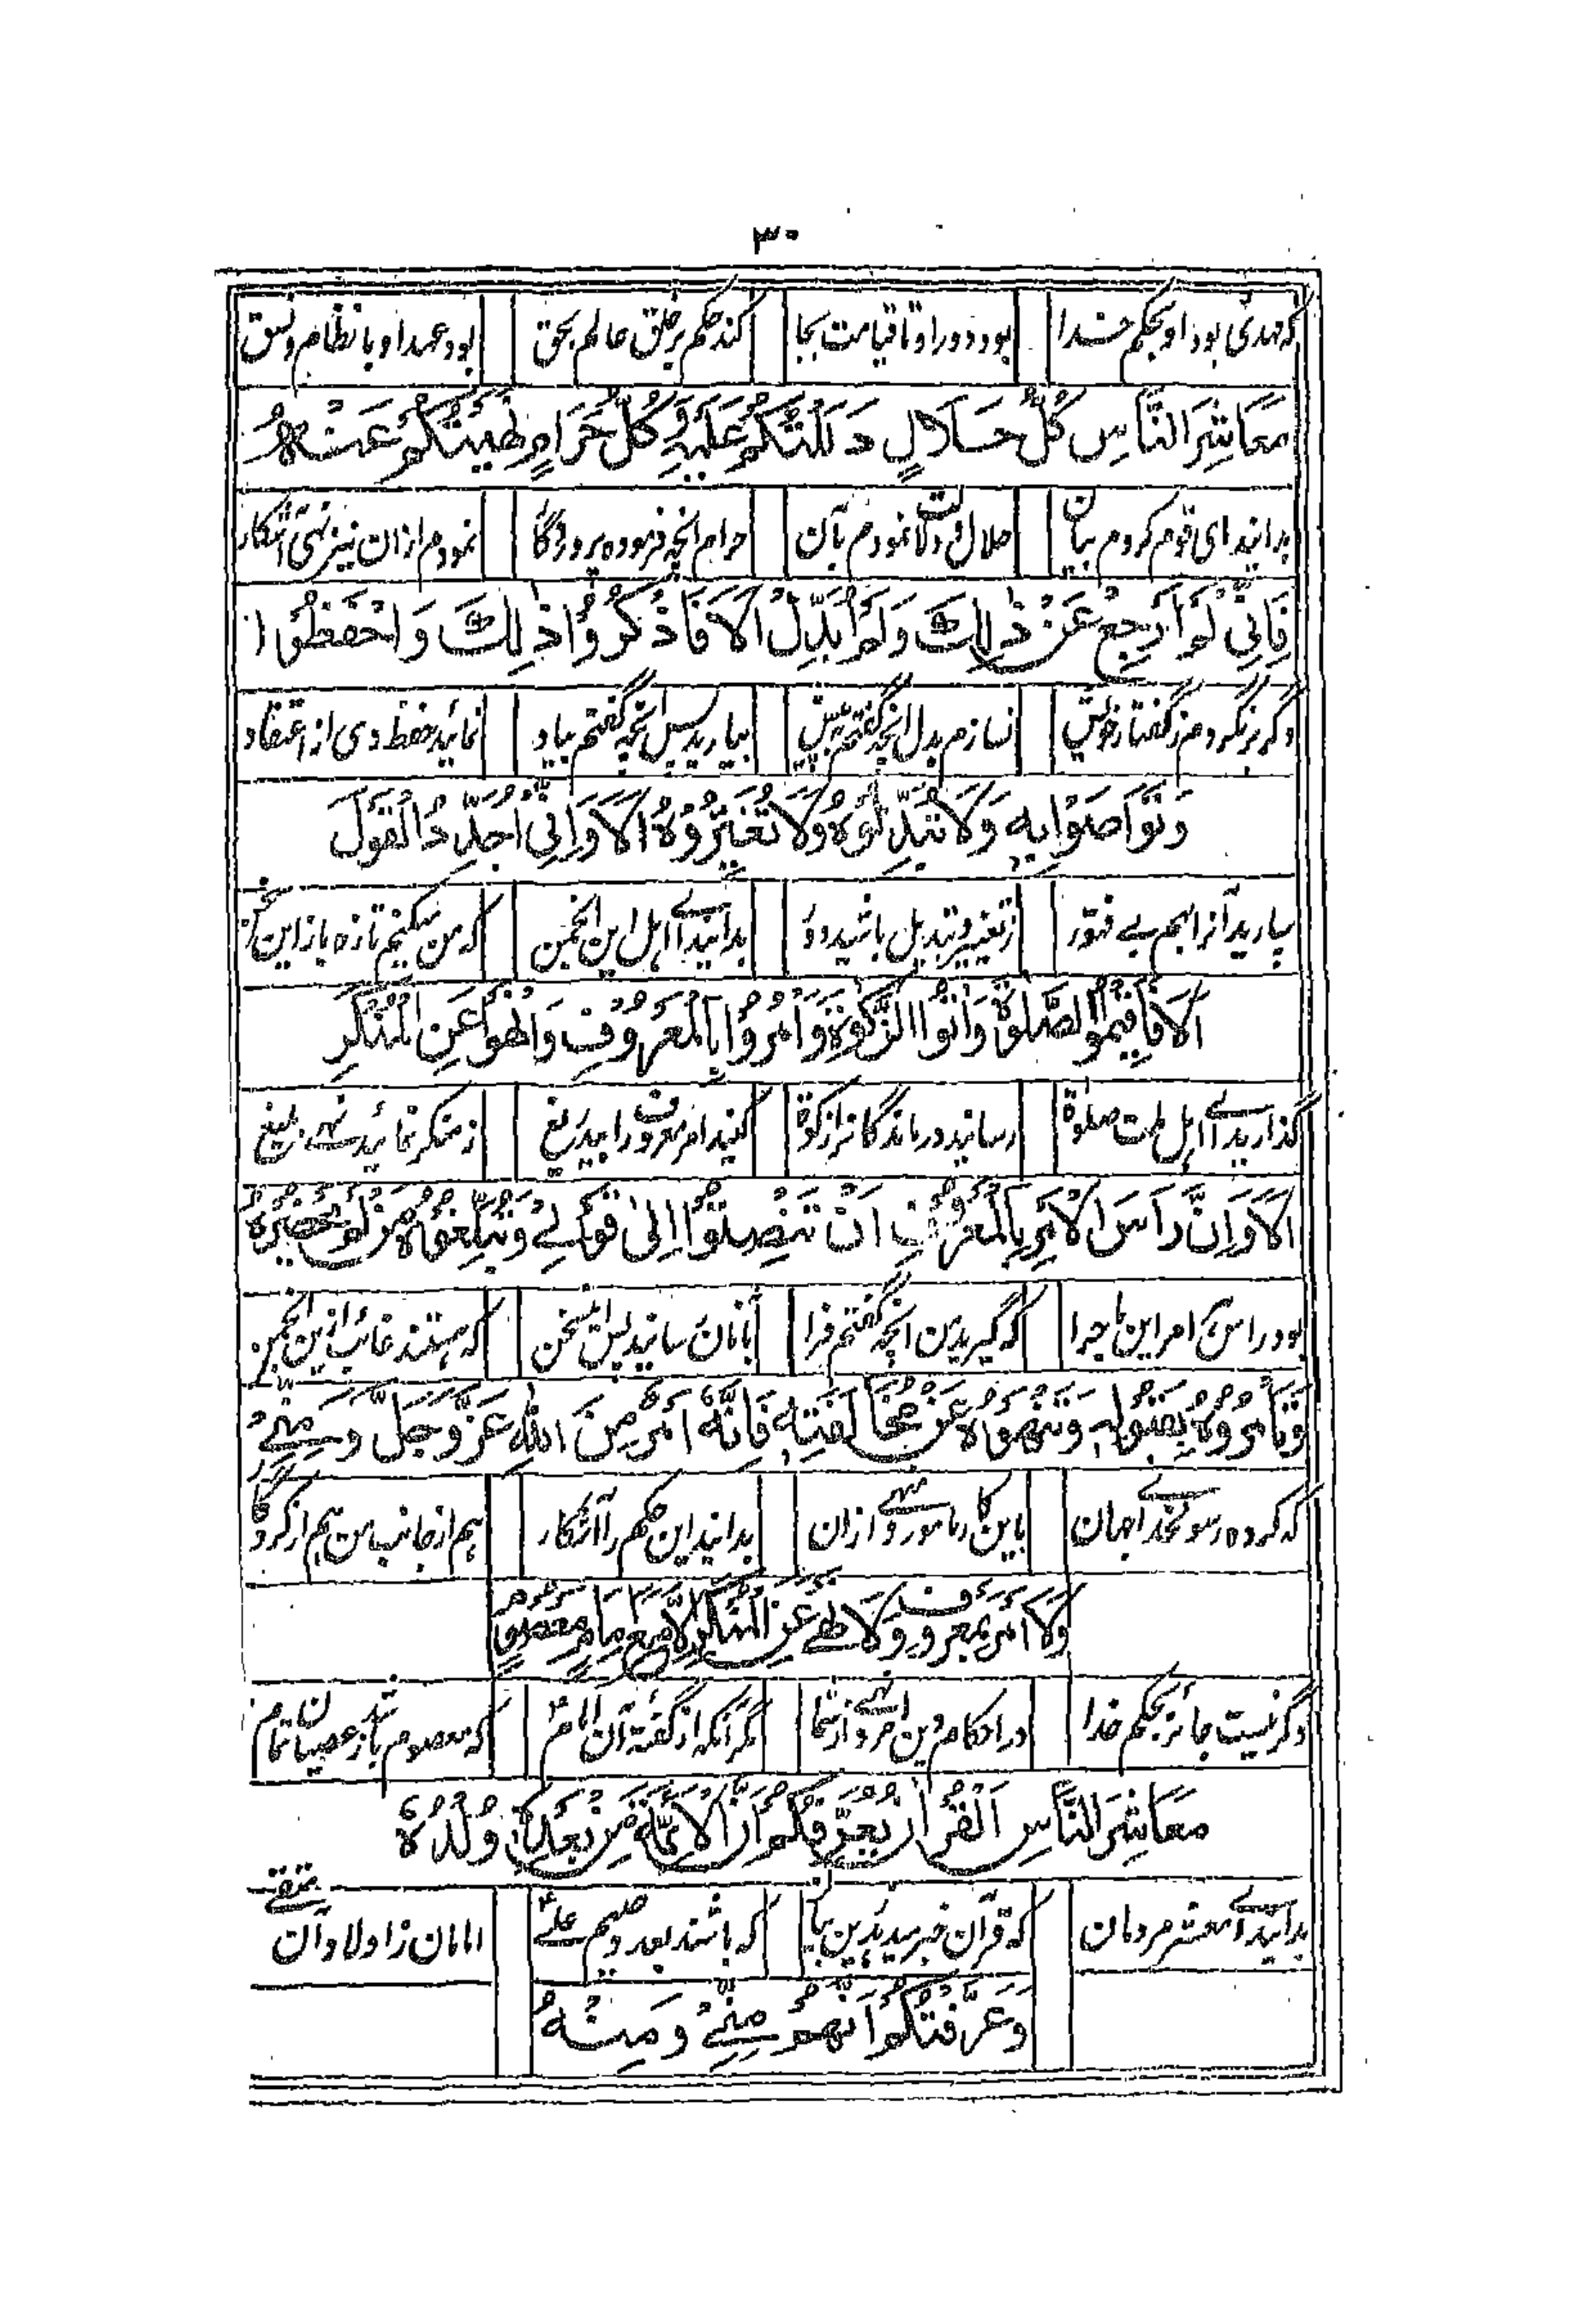 ۳۰
که مهدی بود او بحکم خدا بود دور او تا قیامت بجا کند حکم بر خلق عالم بحق بود عهد او با نظام و نسق
مَعَاشِرَ النَّاسِ كُلُّ حَلَالٍ دَلَلْتُكُمْ عَلَيْهِ وَكُلُّ حَرَامٍ نَهَيْتُكُمْ عَنْهُ
بدانید ای قوم کردم بیان حلال و دلالت نمودم بآن حرام انچه فرموده پروردگار نمودم ازان نیز نهی آشکار
فَاِنِّیْ لَمْ اَرْجِعْ عَنْ ذٰلِكَ وَلَمْ اُبَدِّلْ اَلَا فَاذْكُرُوْا ذٰلِكَ وَاحْفَظُوْا
دگر برنگردم ز گفتار خویش نسازم بدل انچه گفتم ز پیش بیارید پس انچه گفتم بیاد نمائید حفظ وی از اعتقاد
وَتَوَاصَوْا بِهٖ وَلَا تُبَدِّلُوْهُ وَلَا تُغَيِّرُوْهُ اَلَا وَاِنِّیْ اُجَدِّدُ الْقَوْلَ
سپارید آنرا بهم بے فتور ز تغییر و تبدیل باشید دور بدانید اے اهل این انجمن که من میکنم تازه باز این سخن
اَلَا فَاَقِيْمُوا الصَّلٰوةَ وَاٰتُوا الزَّكٰوةَ وَاْمُرُوْا بِالْمَعْرُوْفِ وَانْهَوْا عَنِ الْمُنْكَرِ
گذارید اے اهل ملت صلوٰة رسانید درماندگانرا زکوٰة کنید امر معروف را بیدریغ ز منکر نمائید نهے بلیغ
اَلَا وَاِنَّ رَاْسَ الْاَمْرِ بِالْمَعْرُوْفِ اَنْ تَنْتَهُوْا اِلٰی قَوْلِیْ وَتُبَلِّغُوْهُ مَنْ لَمْ يَحْضُرْهُ
بود راس هر امر این ماجرا که گیرید من انچه گفتم فرا بآنان رسانید پس این سخن که هستند غائب ازین انجمن
وَتَاْمُرُوْهُ بِقَبُوْلِهٖ وَتَنْهَوْهُ عَنْ مُخَالَفَتِهٖ فَاِنَّهٗ اَمْرٌ مِنَ اللهِ عَزَّ وَجَلَّ وَمِنِّیْ
که کرده رسول خداے جهان باین کار مامور و نهے ازان بدانید این حکم را آشکار هم از جانب من هم از کردگار
وَلَا اَمْرٌ بِمَعْرُوْفٍ وَلَا نَهْیٌ عَنِ الْمُنْكَرِ اِلَّا مَعَ اِمَامٍ مَعْصُوْمٍ
دگر نیست جائز بحکم خدا در احکام دین امر و نهے از شما مگر آنکه از گفتهٔ آن امام که معصوم باشد ز عصیان تمام
مَعَاشِرَ النَّاسِ اَلْقُرْاٰنُ يُعَرِّفُكُمْ اَنَّ الْاَئِمَّةَ مِنْ بَعْدِهٖ وُلْدُهٗ
بدانید اے معشر مردمان که قرآن خبر میدهد این بیان که باشند بعد وصیم علےؑ امامان ز اولاد آن متقے
وَعَرَّفْتُكُمْ اَنَّهُمْ مِنِّیْ وَمِنْهُ